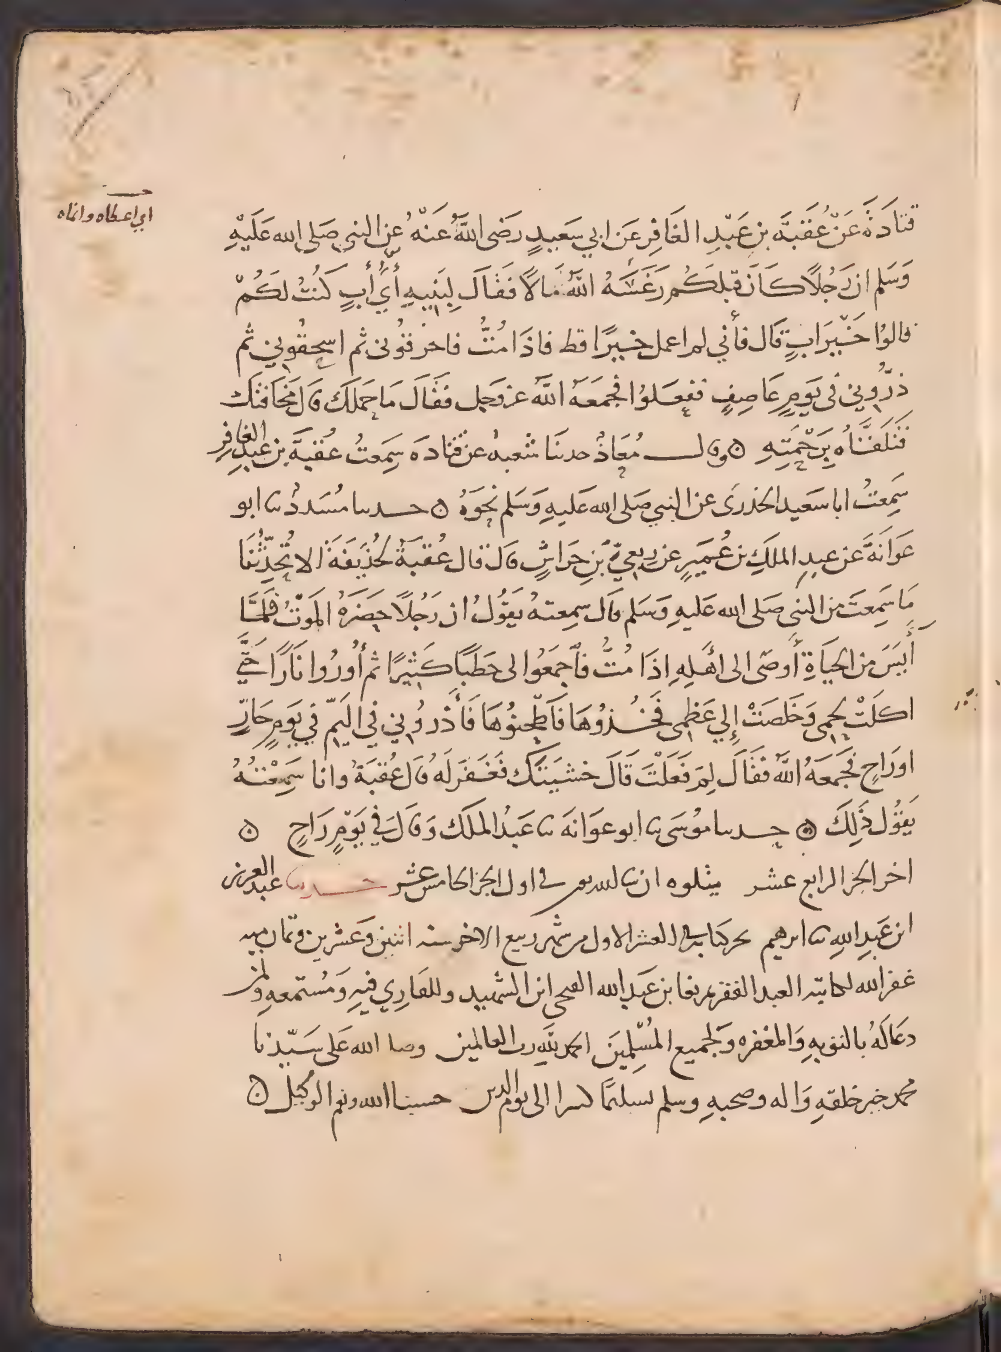 اي اعطاه وانماه
قتادة عن عقبة بن عبد الغافر عن ابي سعيد رضي الله عنه عن النبي صلى الله عليه
وسلم ان رجلا كان قبلكم رغسه الله مالا فقال لبنيه أي أب كنت لكم
قالوا خير اب قال فأني لم اعمل خيرا قط فاذا مت فاحرقوني ثم اسحقوني ثم
ذروني في يوم عاصف ففعلوا فجمعه الله عز وجل فقال ما حملك قال مخافتك
فتلقاه برحمته ۞ وقال معاذ حدثنا شعبة عن قتادة سمعت عقبة بن عبد الغافر
سمعت ابا سعيد الخدري عن النبي صلى الله عليه وسلم نحوه ۞ حدثنا مسدد ثنا ابو
عوانة عن عبد الملك بن عمير عن ربعي بن حراش قال قال عقبة لحذيفة الا تحدثنا
ما سمعت من النبي صلى الله عليه وسلم قال سمعته يقول ان رجلا حضره الموت فلما
أيس من الحياة أوصى الى اهله اذا مت فاجمعوا لى حطبا كثيرا ثم أوروا نارا حتى
اكلت لحمي وخلصت إلي عظمي فخذوها فاطحنوها فأذروني في اليم في يوم حار
او راح فجمعه الله فقال لم فعلت قال خشيتك فغفر له قال عقبة وانا سمعته
يقول ذلك ۞ حدثنا موسى ثنا ابو عوانة ثنا عبد الملك وقال في يوم راح ۞
اخر الجز الرابع عشر يتلوه ان شا الله في اول الجز الخامس عشر حدثنا عبد العزيز
ابن عبد الله ثنا ابرهيم كتابه في العشر الاول من شهر ربيع الاخر سنه اثنين وعشرين وثمان ميه
غفر الله لكاتبه العبد الفقير بن عبد الله ابن الشهيد وللقاري فيه ومستمعه ولمن
دعا له بالتوبه والمغفره ولجميع المسلمين الحمد لله رب العالمين وصلى الله على سيدنا
محمد خير خلقه واله وصحبه وسلم تسليما كثيرا الى يوم الدين حسبنا الله ونعم الوكيل ۞